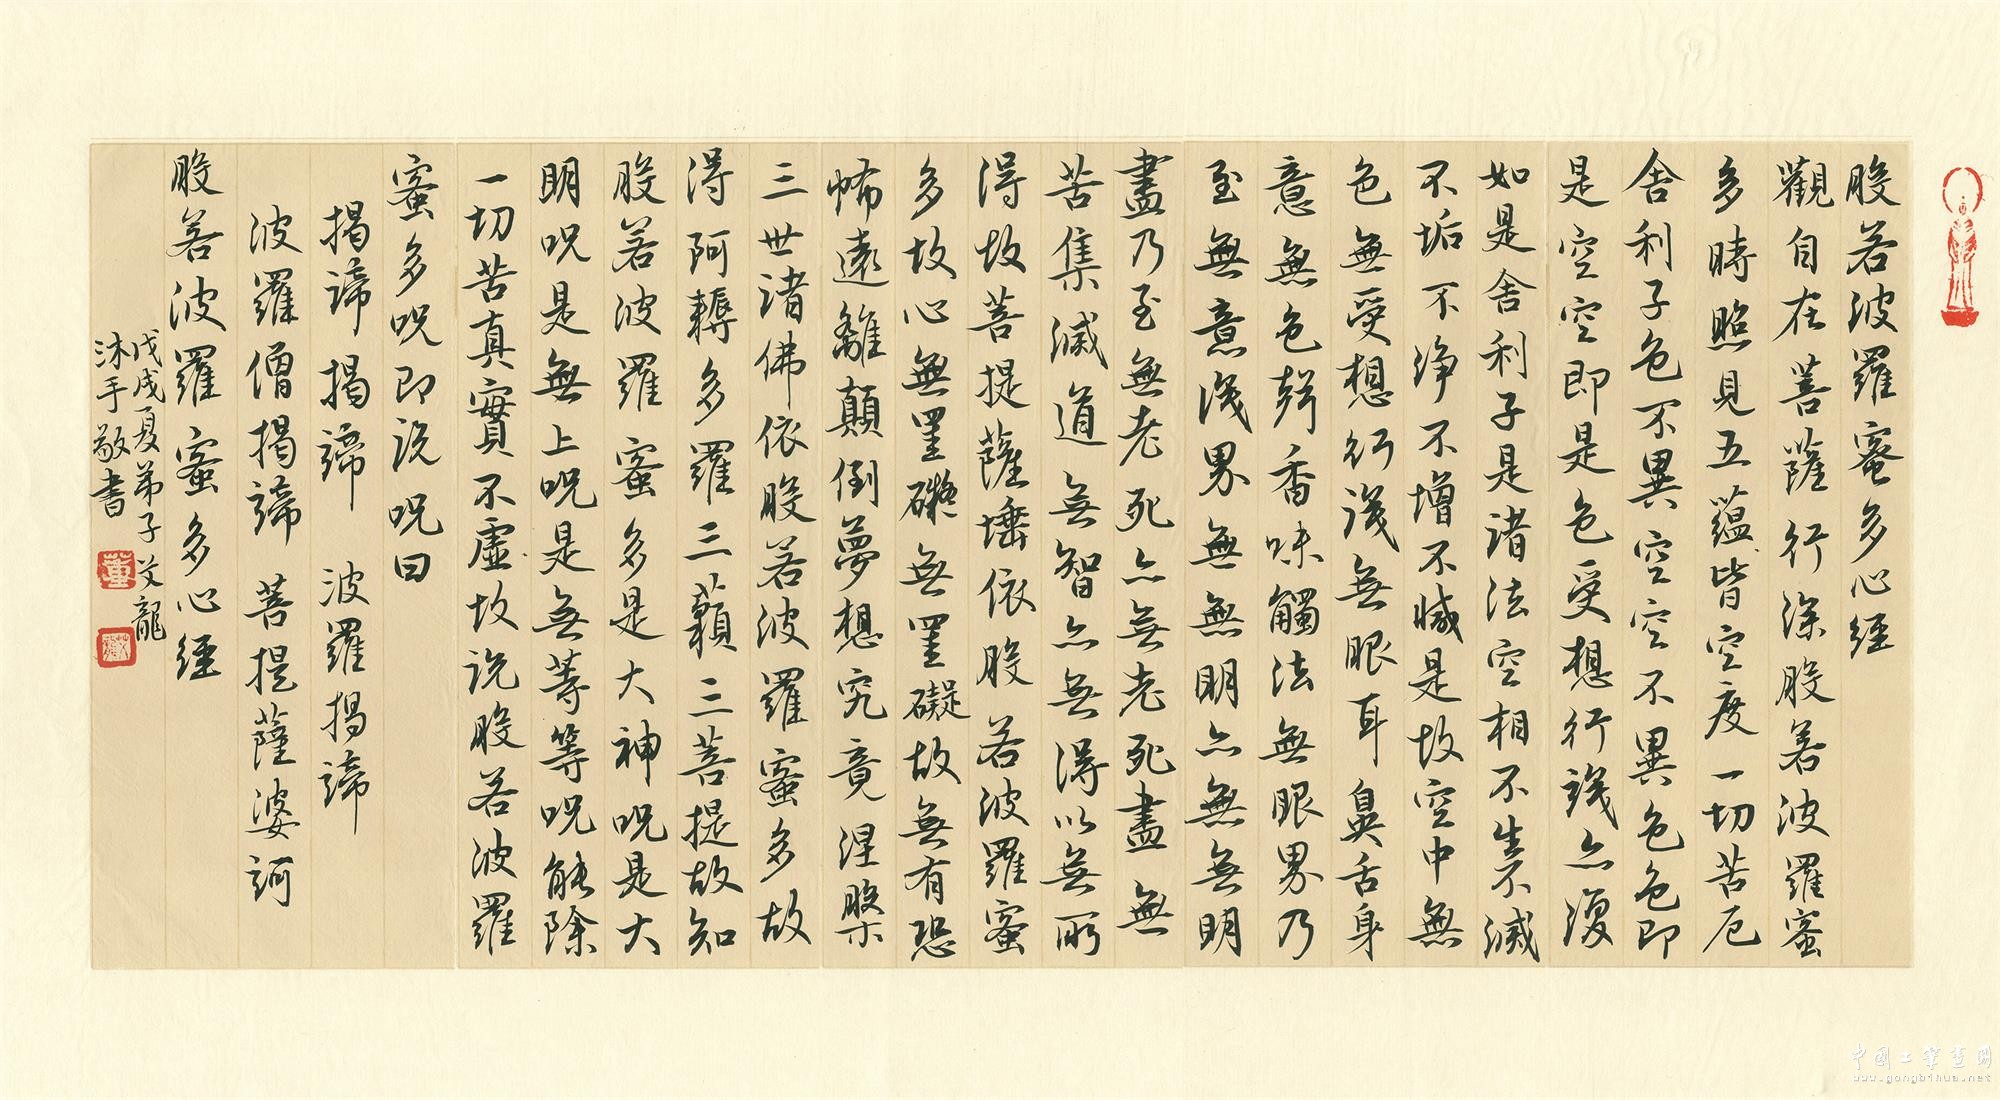 般若波羅蜜多心經
觀自在菩薩行深般若波羅蜜
多時照見五蘊皆空度一切苦厄
舍利子色不異空空不異色色即
是空空即是色受想行識亦復
如是舍利子是諸法空相不生不滅
不垢不净不增不減是故空中無
色無受想行識無眼耳鼻舌身
意無色聲香味觸法無眼界乃
至無意識界無無明亦無無明
盡乃至無老死亦無老死盡無
苦集滅道無智亦無得以無所
得故菩提薩埵依般若波羅蜜
多故心無罣礙無罣礙故無有恐
怖遠離顛倒夢想究竟涅槃
三世諸佛依般若波羅蜜多故
得阿耨多羅三藐三菩提故知
般若波羅蜜多是大神呪是大
明呪是無上呪是無等等呪能除
一切苦真實不虛故説般若波羅
蜜多呪即説呪曰
揭諦揭諦 波羅揭諦
波羅僧揭諦 菩提薩婆訶
般若波羅蜜多心經
戊戌夏弟子艾龍
沐手敬書
董
中国工笔画网
www.gongbihua.net